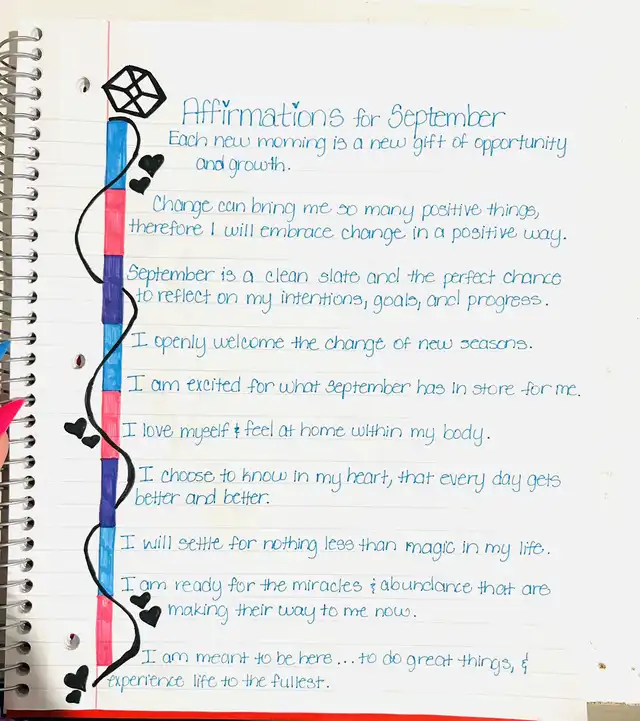 Affirmations for September
Each new morning is a new gift of opportunity
and growth.
Change can bring me so many positive things,
therefore I will embrace change in a positive way.
September is a clean slate and the perfect chance
to reflect on my intentions, goals, and progress.
I openly welcome the change of new seasons.
I am excited for what september has in store for me.
I love myself & feel at home within my body.
I choose to know in my heart, that every day gets
better and better.
I will settle for nothing less than magic in my life.
I am ready for the miracles & abundance that are
making their way to me now.
I am meant to be here... to do great things, &
experience life to the fullest.